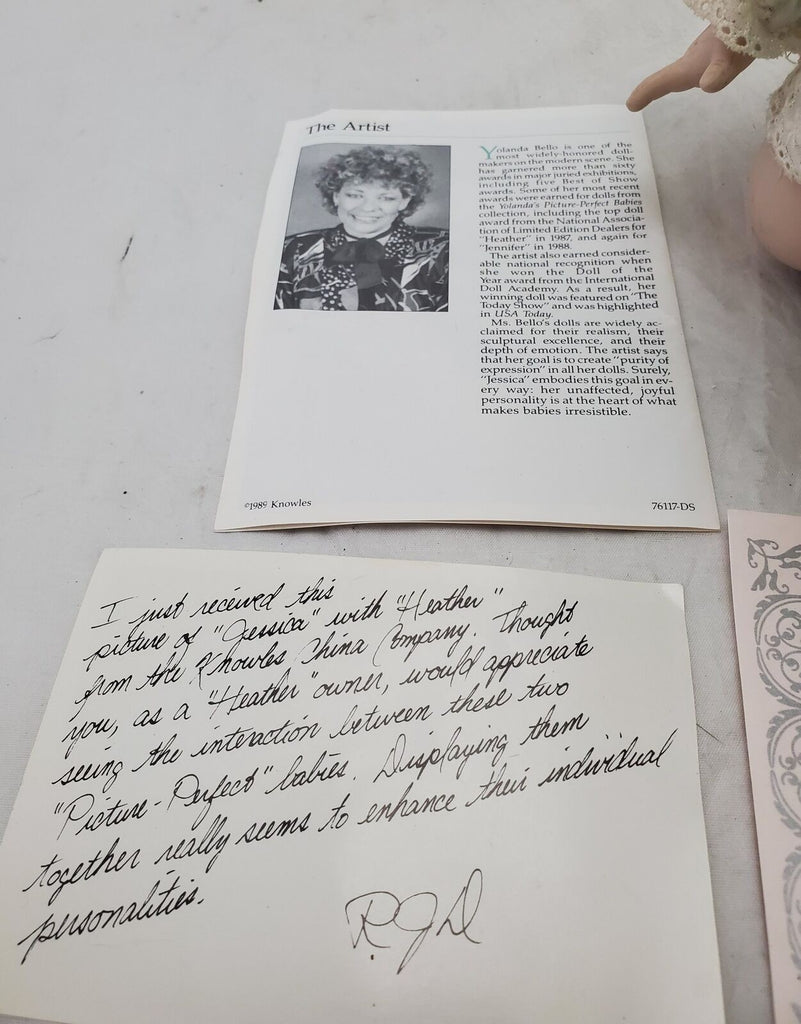 The Artist
Yolanda Bello is one of the
most widely-honored doll-
makers on the modern scene. She
has garnered more than sixty
awards in major juried exhibitions,
including five Best of Show
awards. Some of her most recent
awards were earned for dolls from
the Yolanda's Picture-Perfect Babies
collection, including the top doll
award from the National Associa-
tion of Limited Edition Dealers for
"Heather" in 1987, and again for
"Jennifer" in 1988.
The artist also earned consider-
able national recognition when
she won the Doll of the
Year award from the International
Doll Academy. As a result, her
winning doll was featured on "The
Today Show" and was highlighted
in USA Today.
Ms. Bello's dolls are widely ac-
claimed for their realism, their
sculptural excellence, and their
depth of emotion. The artist says
that her goal is to create "purity of
expression" in all her dolls. Surely,
"Jessica" embodies this goal in ev-
ery way: her unaffected, joyful
personality is at the heart of what
makes babies irresistible.
©1989 Knowles
76117-DS
I just received this
picture of "Jessica" with "Heather"
from the Knowles China Company. Thought
you, as a "Heather" owner, would appreciate
seeing the interaction between these two
"Picture-Perfect" babies. Displaying them
together really seems to enhance their individual
personalities.
RJD